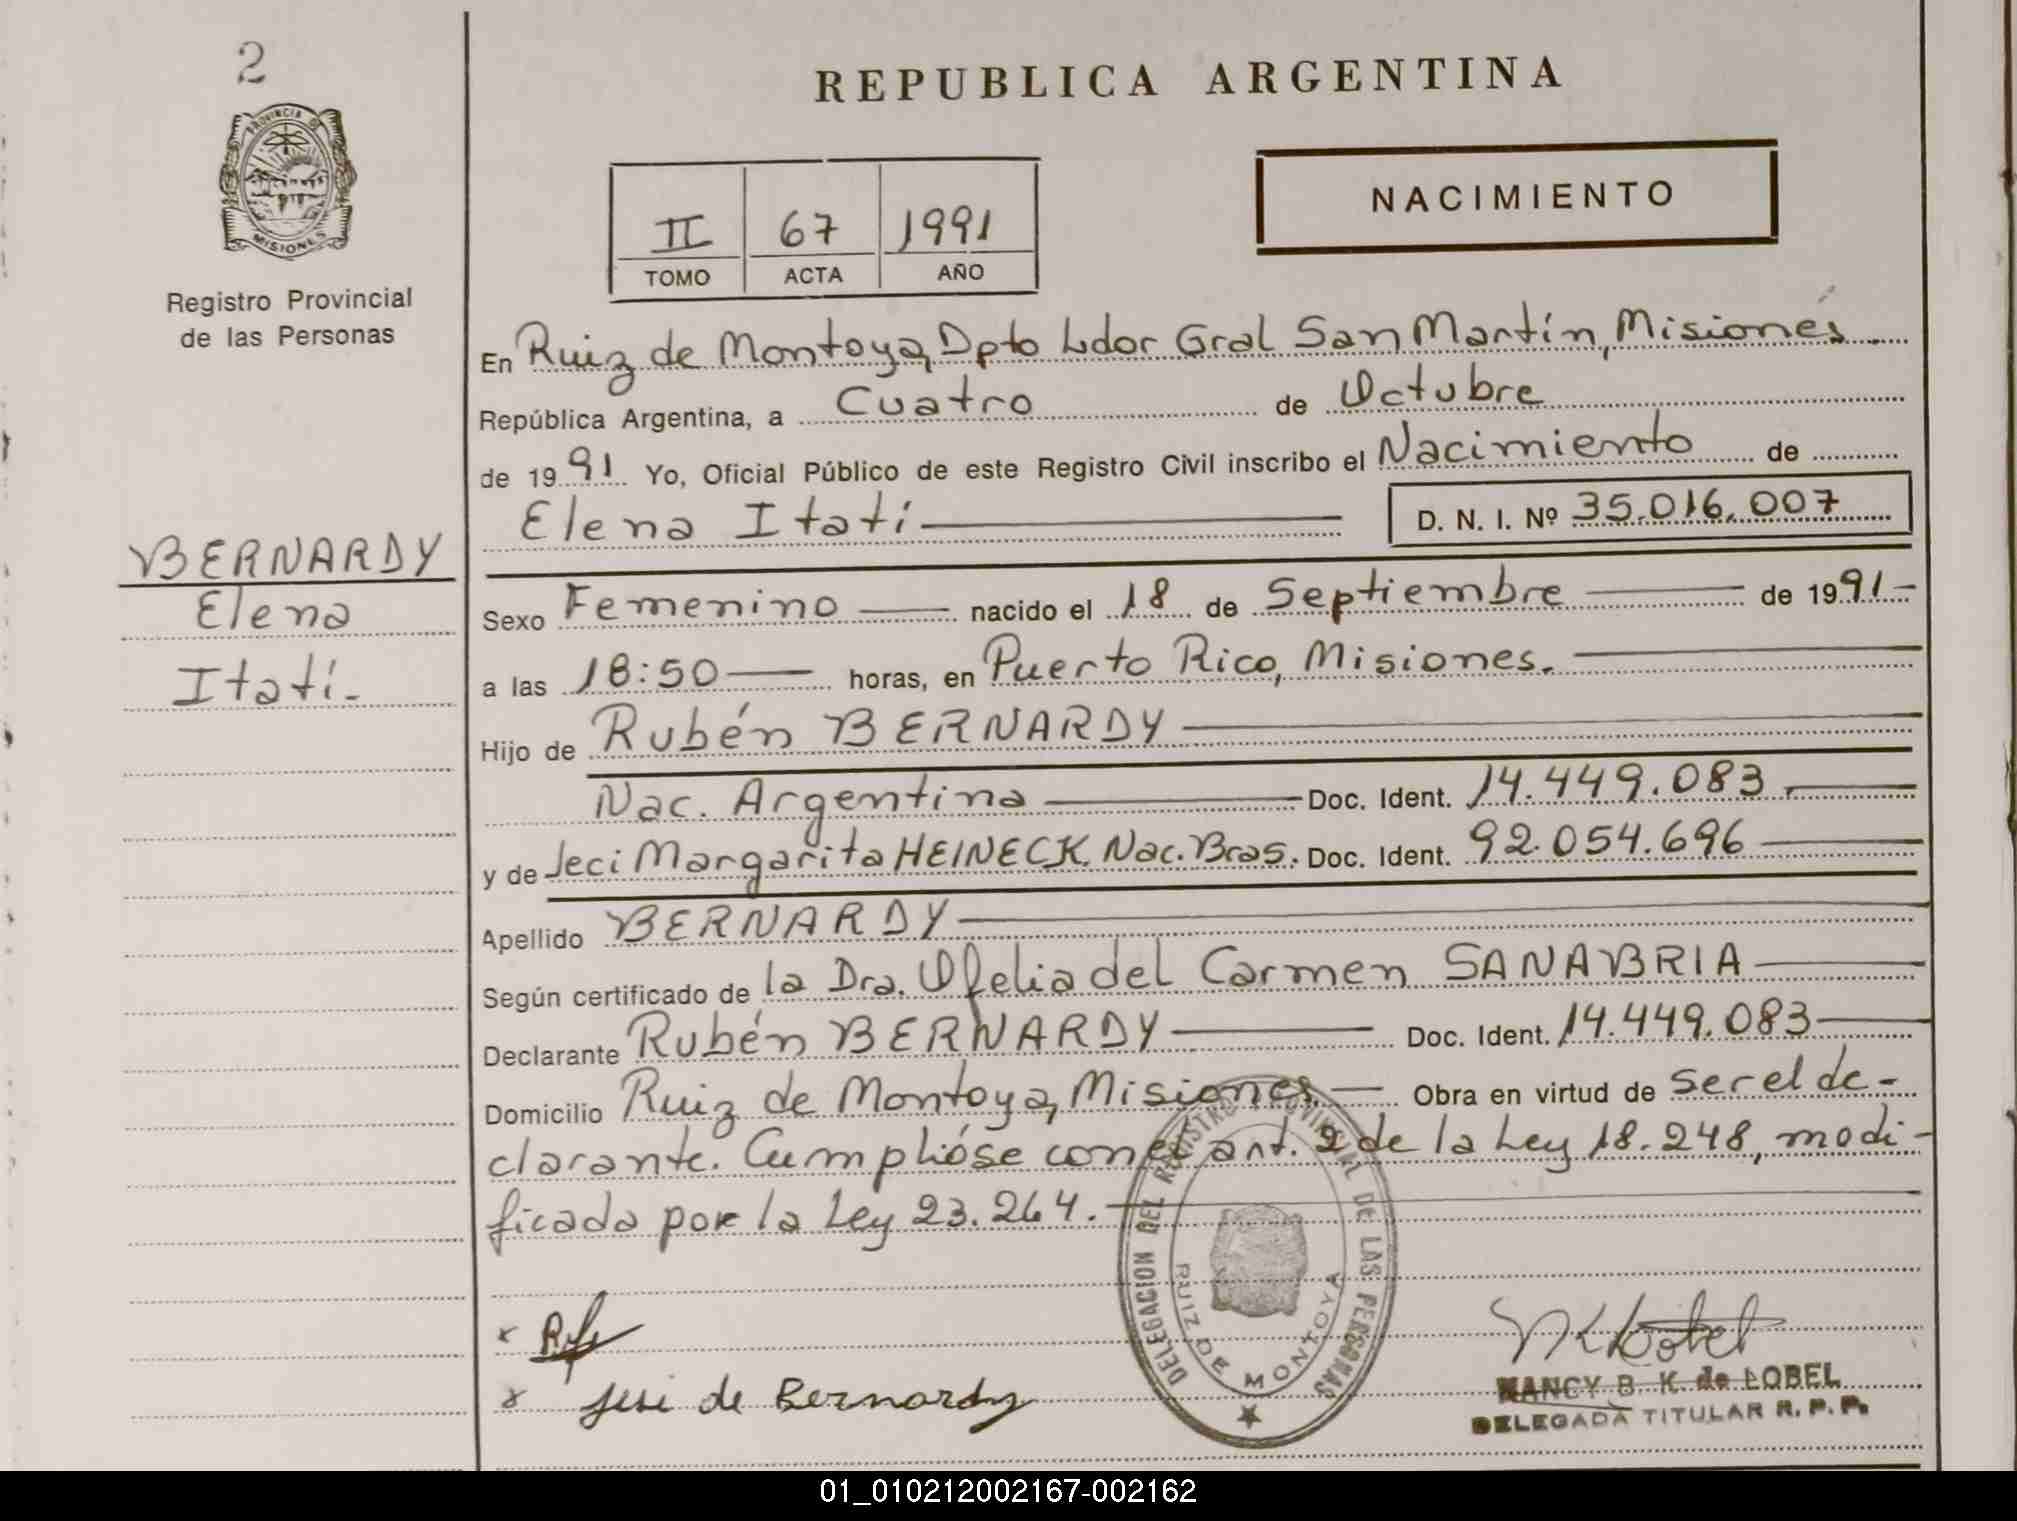 2
PROVINCIA DE
MISIONES
Registro Provincial
de las Personas
BERNARDY
Elena
Itatí.-
REPUBLICA ARGENTINA
NACIMIENTO
II 67 1991
TOMO ACTA AÑO
En Ruiz de Montoya, Dpto Ldor Gral San Martín, Misiones
República Argentina, a Cuatro de Octubre
de 1991 Yo, Oficial Público de este Registro Civil inscribo el Nacimiento de
Elena Itatí D. N. I. Nº 35.016.007
Sexo Femenino nacido el 18 de Septiembre de 1991-
a las 18:50 horas, en Puerto Rico, Misiones.
Hijo de Rubén BERNARDY
Nac. Argentina Doc. Ident. 14.449.083
y de Jeci Margarita HEINECK. Nac. Bras. Doc. Ident. 92.054.696
Apellido BERNARDY
Según certificado de la Dra. Ofelia del Carmen SANABRIA
Declarante Rubén BERNARDY Doc. Ident. 14.449.083
Domicilio Ruiz de Montoya, Misiones. Obra en virtud de ser el de-
clarante. Cumplióse con el art. 2 de la Ley 18.248, modi-
ficada por la Ley 23.264.-
DELEGACION DEL REGISTRO PROVINCIAL DE LAS PERSONAS
RUIZ DE MONTOYA
x
x Jesi de Bernardy
NANCY B. K. de LOBEL
DELEGADA TITULAR R. P. P.
01_010212002167-002162